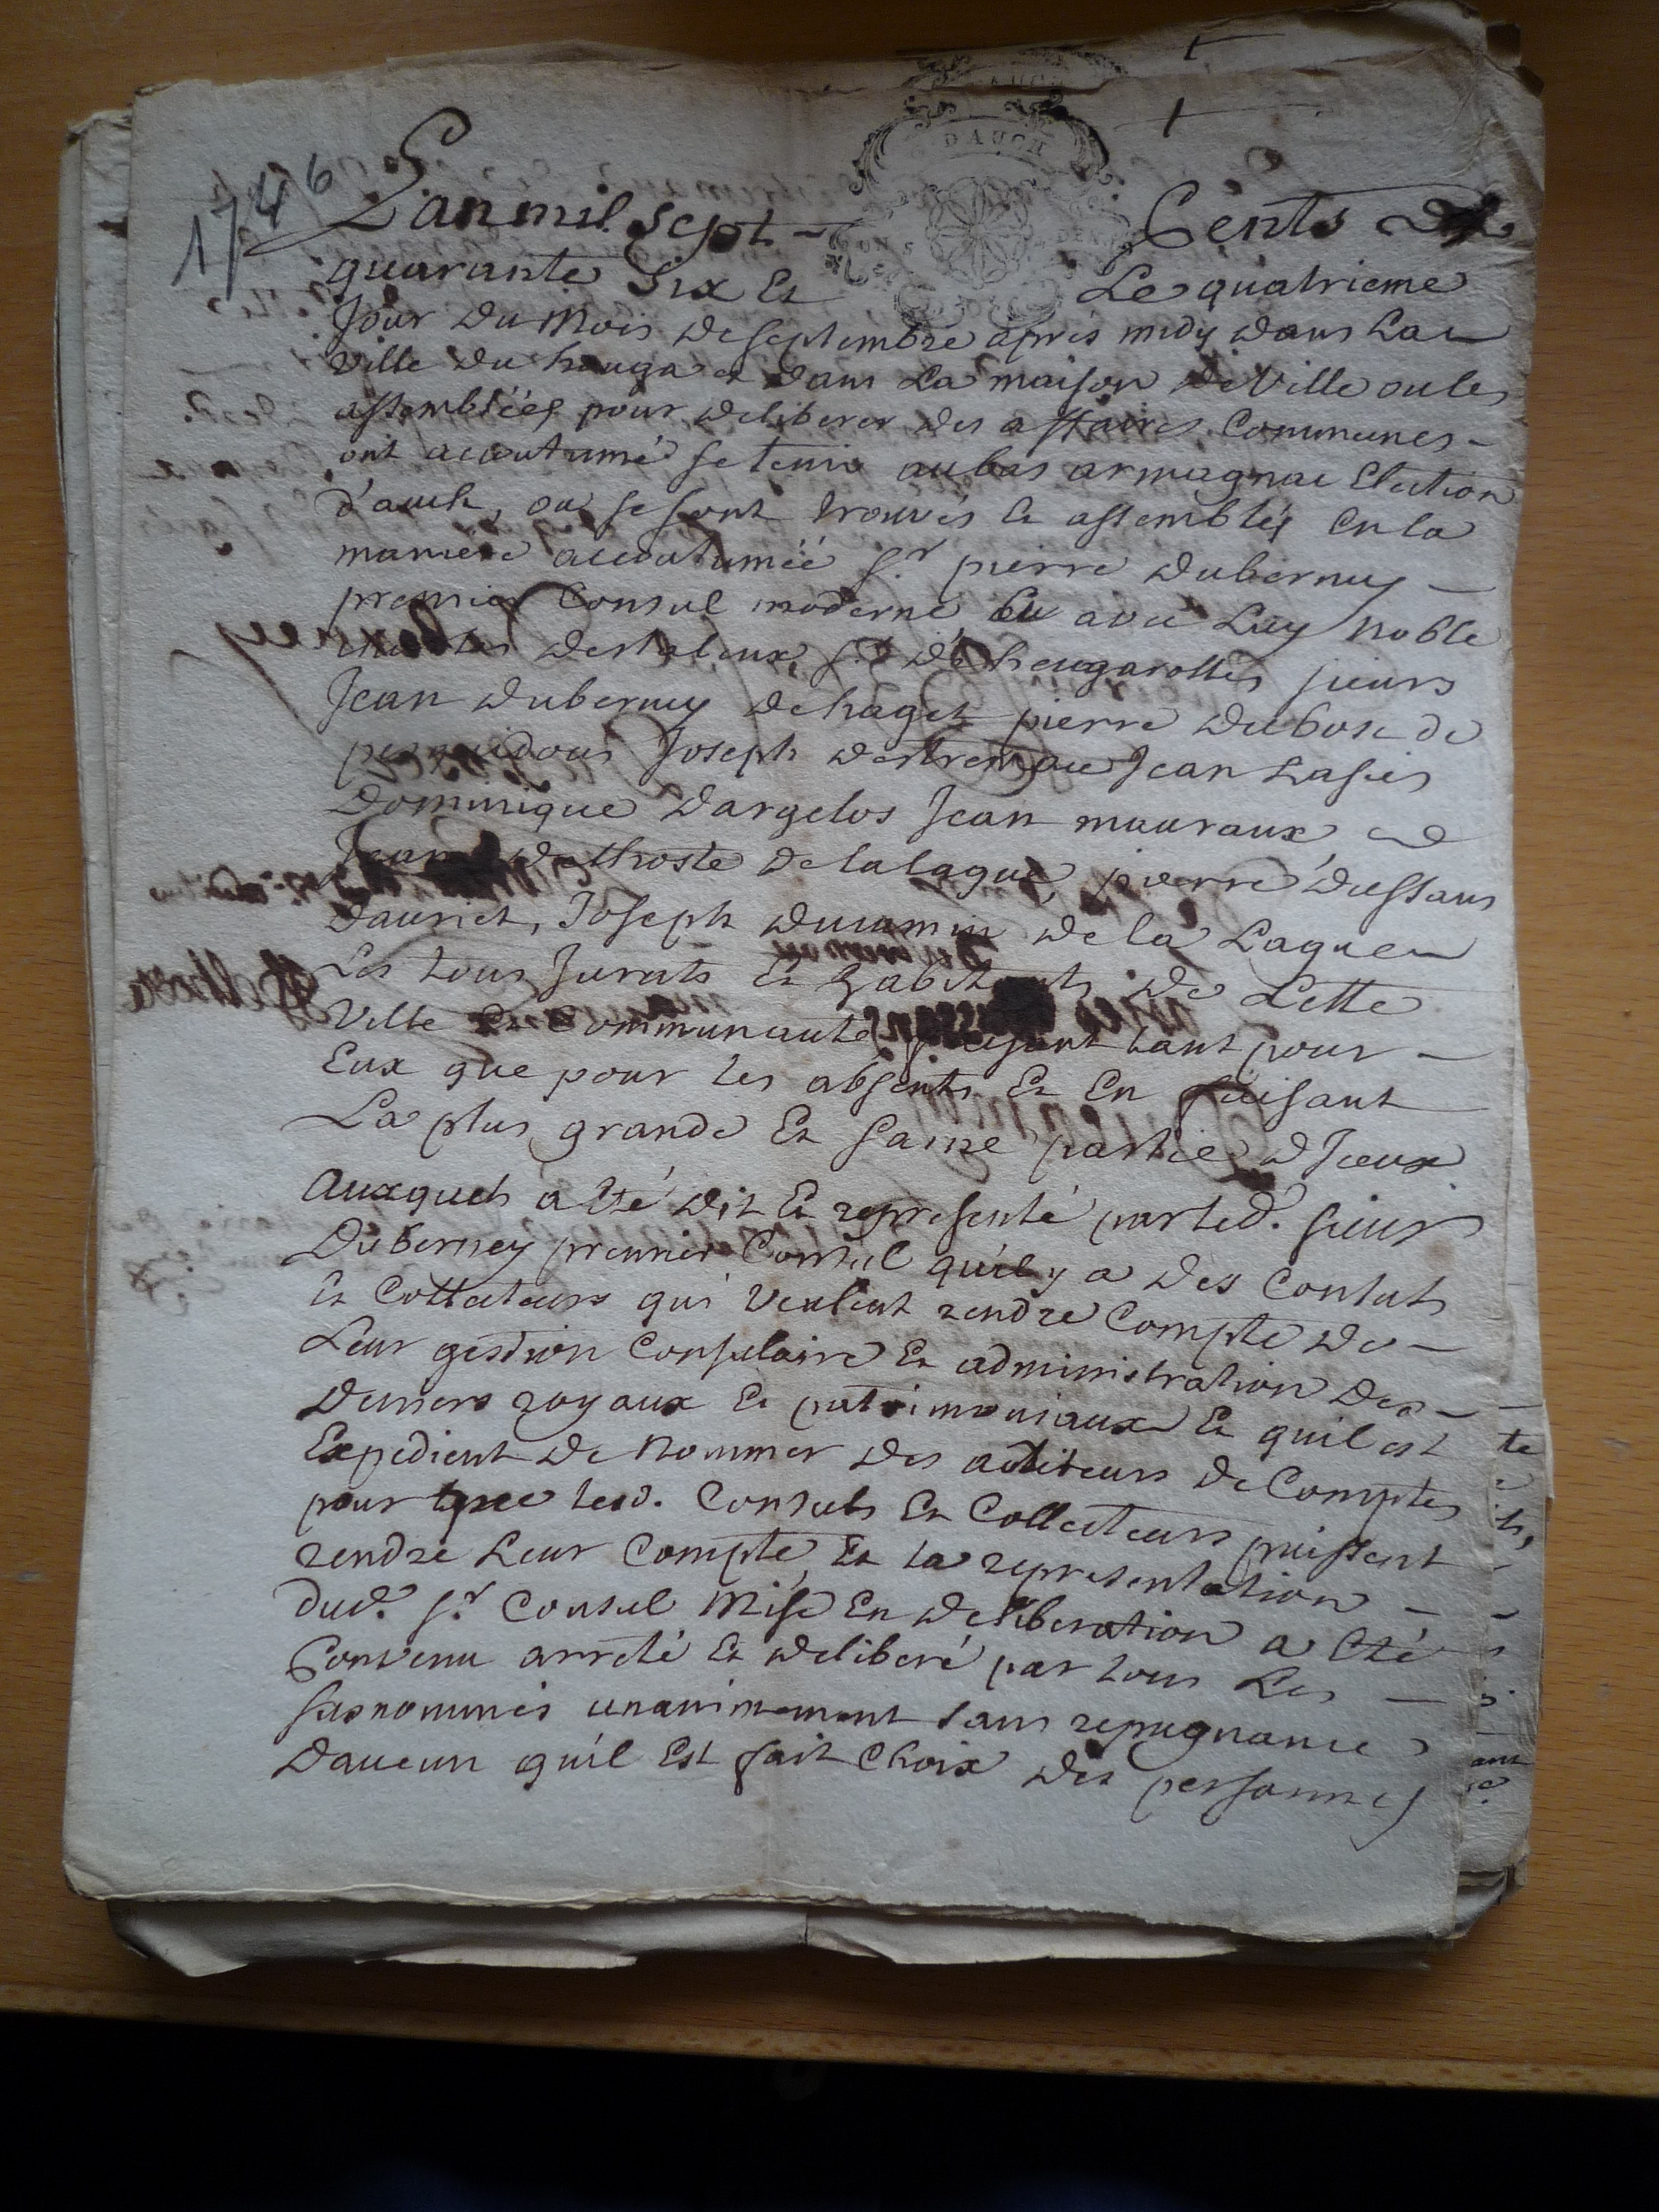 1746
D'AUCH
L'an mil sept - Cents
quarante Six Et Le quatrieme
Jour du Mois de septembre apres midy dans La
ville du houga et dans La maison de Ville ou les
assemblées pour deliberer des affaires Communes -
ont accoutumé se tenir au bas armagnac Election
d'auch, ou se sont trouvés Et assemblés En la
maniere accoutumée sr. pierre duberney -
premier Consul moderne avec Luy Noble
sr. de hougarottes sieurs
Jean duberney de haget pierre dubosc de
pesquidous Joseph destremau Jean Lasies
Dominique Dargelos Jean mauraux
Jean de lalague, pierre dussans
dauriet, Joseph ducamin de la Lague
Les tous Jurats Et habitants de Cette
Ville Et Communauté faisant tant pour -
Eux que pour les absents Et En faisant
La plus grande Et saine partie d'Iceux
Auxquels a Eté dit Et representé par led. sieur
Duberney premier Consul qu'il y a des Consuls
Et Collecteurs qui veulent rendre Compte de -
Leur gestion Consulaire Et administration des -
deniers royaux Et patrimoniaux Et quil est
Expedient de Nommer des auditeurs de Comptes
pour que lesd. Consuls Et Collecteurs puissent
rendre Leur Compte, Et la representation -
dud. sr. Consul Mise En deliberation a Eté
Convenu arreté Et deliberé par tous Les -
susnommés unanimement sans repugnance
Daucun qu'il Est fait Choix des personnes